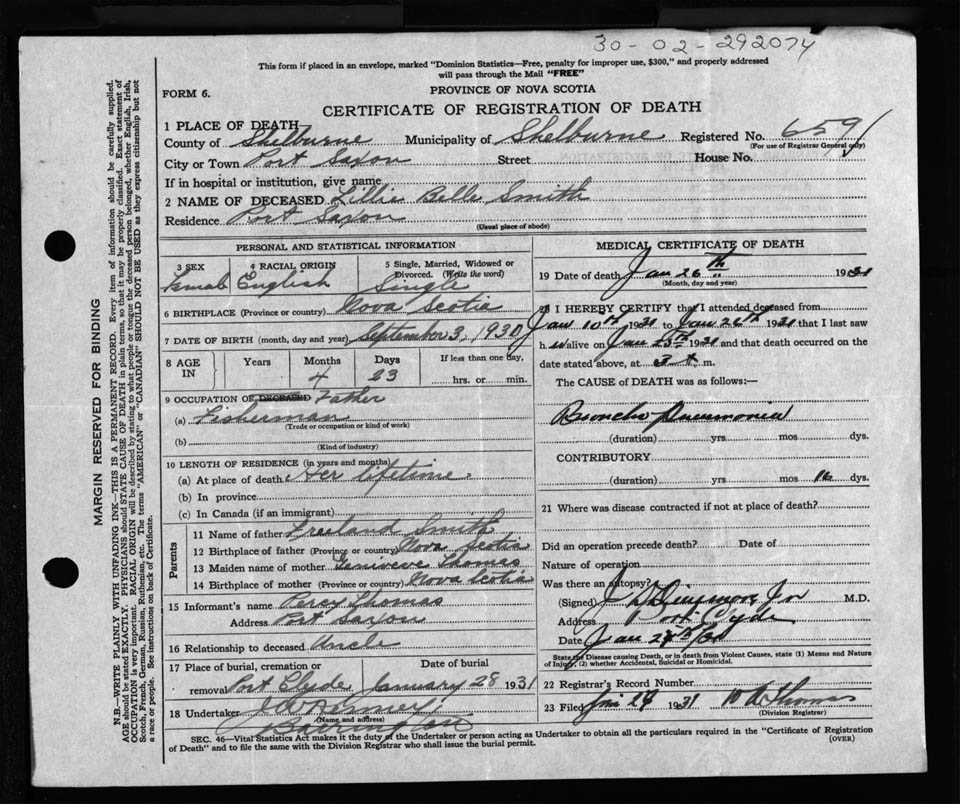 30-02-292074
This form if placed in an envelope, marked "Dominion Statistics—Free, penalty for improper use, $300," and properly addressed
will pass through the Mail "FREE"
FORM 6.
PROVINCE OF NOVA SCOTIA
CERTIFICATE OF REGISTRATION OF DEATH
1 PLACE OF DEATH
County of Shelburne Municipality of Shelburne Registered No. 6591
(For use of Registrar General only)
City or Town Port Saxon Street House No.
If in hospital or institution, give name
2 NAME OF DECEASED Lillie Belle Smith
Residence Port Saxon
(Usual place of abode)
PERSONAL AND STATISTICAL INFORMATION
3 SEX 4 RACIAL ORIGIN 5 Single, Married, Widowed or Divorced. (Write the word)
Female English Single
6 BIRTHPLACE (Province or country) Nova Scotia
7 DATE OF BIRTH (month, day and year) September 3, 1930
8 AGE IN Years Months Days If less than one day,
4 23 hrs. or min.
9 OCCUPATION OF DECEASED Father
(a) Fisherman
(Trade or occupation or kind of work)
(b)
(Kind of industry)
10 LENGTH OF RESIDENCE (in years and months)
(a) At place of death Her lifetime
(b) In province
(c) In Canada (if an immigrant)
Parents
11 Name of father Freeland Smith
12 Birthplace of father (Province or country) Nova Scotia
13 Maiden name of mother Geniveve Thomas
14 Birthplace of mother (Province or country) Nova Scotia
15 Informant's name Percy Thomas
Address Port Saxon
16 Relationship to deceased Uncle
17 Place of burial, cremation or removal Date of burial
Port Clyde January 28 1931
18 Undertaker
(Name and address)
Barrington
MEDICAL CERTIFICATE OF DEATH
19 Date of death Jan 26th 1931
(Month, day and year)
20 I HEREBY CERTIFY that I attended deceased from
Jan 10th 1931 to Jan 26th 1931 that I last saw
h er alive on Jan 25th 1931 and that death occurred on the
date stated above, at m.
The CAUSE of DEATH was as follows:
Broncho Pneumonia
(duration) yrs mos dys.
CONTRIBUTORY
(duration) yrs mos 16 dys.
21 Where was disease contracted if not at place of death?
Did an operation precede death? Date of
Nature of operation
Was there an autopsy?
(Signed) M.D.
Address Port Clyde
Date Jan 28th
State the Disease causing Death, or in death from Violent Causes, state (1) Means and Nature
of Injury, (2) whether Accidental, Suicidal or Homicidal.
22 Registrar's Record Number
23 Filed 1931
(Division Registrar)
SEC. 46—Vital Statistics Act makes it the duty of the Undertaker or person acting as Undertaker to obtain all the particulars required in the "Certificate of Registration
of Death" and to file the same with the Division Registrar who shall issue the burial permit.
(OVER)
MARGIN RESERVED FOR BINDING
N.B.—WRITE PLAINLY WITH UNFADING INK—THIS IS A PERMANENT RECORD. Every item of information should be carefully supplied.
AGE should be stated EXACTLY. PHYSICIANS should STATE CAUSE OF DEATH in plain terms, so that it may be properly classified. Exact statement of
OCCUPATION is very important. RACIAL ORIGIN will be described by stating to what people or tongue the deceased person belonged, whether English, Irish,
Scotch, French, German, Russian, Ruthenian, etc. The terms "AMERICAN" or "CANADIAN" SHOULD NOT BE USED as they express citizenship but not
a race or people. See instructions on back of Certificate.